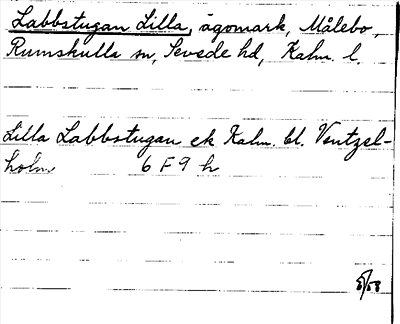 Labbstugan Lilla, ägomark, Målebo,
Rumskulla sn, Sevede hd, Kalm. l.
Lilla Labbstugan ek Kalm. bl. Ventzel-
holm 6 F 9 h